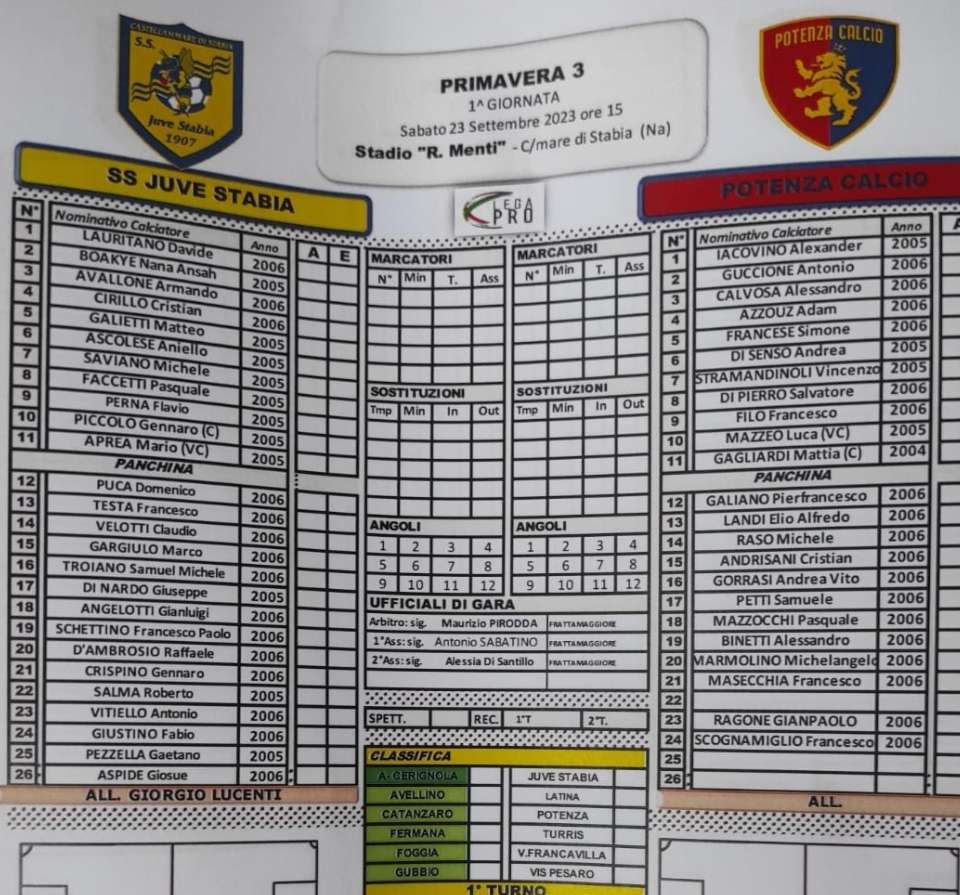 CASTELLAMMARE DI STABIA
S.S.
Juve Stabia
1907
PRIMAVERA 3
1^ GIORNATA
Sabato 23 Settembre 2023 ore 15
Stadio "R. Menti" - C/mare di Stabia (Na)
POTENZA CALCIO
SS JUVE STABIA
LEGA PRO
POTENZA CALCIO
N° Nominativo Calciatore Anno A E
1 LAURITANO Davide 2006
2 BOAKYE Nana Ansah 2005
3 AVALLONE Armando 2006
4 CIRILLO Cristian 2006
5 GALIETTI Matteo 2006
6 ASCOLESE Aniello 2005
7 SAVIANO Michele 2005
8 FACCETTI Pasquale 2006
9 PERNA Flavio 2005
10 PICCOLO Gennaro (C) 2005
11 APREA Mario (VC) 2005
PANCHINA
12 PUCA Domenico 2006
13 TESTA Francesco 2006
14 VELOTTI Claudio 2006
15 GARGIULO Marco 2006
16 TROIANO Samuel Michele 2006
17 DI NARDO Giuseppe 2005
18 ANGELOTTI Gianluigi 2006
19 SCHETTINO Francesco Paolo 2006
20 D'AMBROSIO Raffaele 2006
21 CRISPINO Gennaro 2006
22 SALMA Roberto 2005
23 VITIELLO Antonio 2006
24 GIUSTINO Fabio 2006
25 PEZZELLA Gaetano 2005
26 ASPIDE Giosue 2006
ALL. GIORGIO LUCENTI
MARCATORI MARCATORI
N° Min T. Ass N° Min T. Ass
SOSTITUZIONI SOSTITUZIONI
Tmp Min In Out Tmp Min In Out
ANGOLI ANGOLI
1 2 3 4 1 2 3 4
5 6 7 8 5 6 7 8
9 10 11 12 9 10 11 12
UFFICIALI DI GARA
Arbitro: sig. Maurizio PIRODDA FRATTAMAGGIORE
1°Ass: sig. Antonio SABATINO FRATTAMAGGIORE
2°Ass: sig. Alessia Di Santillo FRATTAMAGGIORE
SPETT. REC. 1°T 2°T.
CLASSIFICA
A- CERIGNOLA JUVE STABIA
AVELLINO LATINA
CATANZARO POTENZA
FERMANA TURRIS
FOGGIA V.FRANCAVILLA
GUBBIO VIS PESARO
1° TURNO
N° Nominativo Calciatore Anno
1 IACOVINO Alexander 2005
2 GUCCIONE Antonio 2006
3 CALVOSA Alessandro 2006
4 AZZOUZ Adam 2006
5 FRANCESE Simone 2006
6 DI SENSO Andrea 2005
7 STRAMANDINOLI Vincenzo 2005
8 DI PIERRO Salvatore 2006
9 FILO Francesco 2006
10 MAZZEO Luca (VC) 2005
11 GAGLIARDI Mattia (C) 2004
PANCHINA
12 GALIANO Pierfrancesco 2006
13 LANDI Elio Alfredo 2006
14 RASO Michele 2006
15 ANDRISANI Cristian 2006
16 GORRASI Andrea Vito 2006
17 PETTI Samuele 2006
18 MAZZOCCHI Pasquale 2006
19 BINETTI Alessandro 2006
20 MARMOLINO Michelangelo 2006
21 MASECCHIA Francesco 2006
22
23 RAGONE GIANPAOLO 2006
24 SCOGNAMIGLIO Francesco 2006
25
26
ALL.